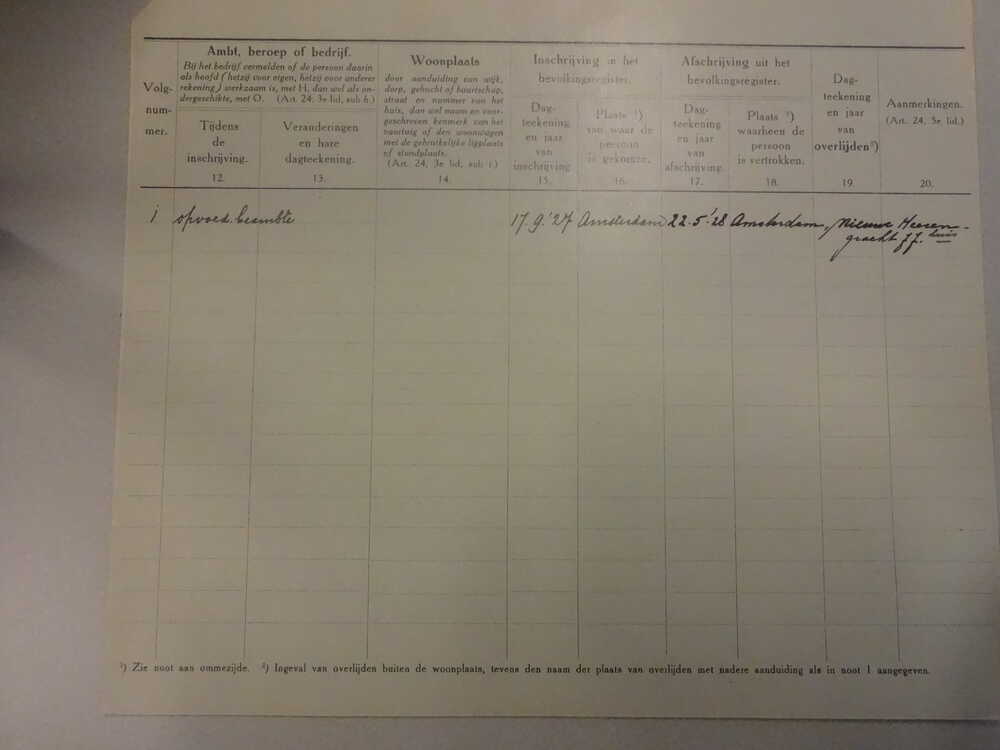 Volg-
num-
mer.
Ambt, beroep of bedrijf.
Bij het bedrijf vermelden of de persoon daarin
als hoofd (hetzij voor eigen, hetzij voor anderer
rekening) werkzaam is, met H, dan wel als on-
dergeschikte, met O. (Art. 24, 3e lid, sub 6.)
Tijdens
de
inschrijving.
12.
Veranderingen
en hare
dagteekening.
13.
Woonplaats
door aanduiding van wijk,
dorp, gehucht of buurtschap,
straat en nummer van het
huis, dan wel naam en voor-
geschreven kenmerk van het
vaartuig of den woonwagen
met de gebruikelijke ligplaats
of standplaats.
(Art. 24, 3e lid, sub 1.)
14.
Inschrijving in het
bevolkingsregister.
Dag-
teekening
en jaar
van
inschrijving
15.
Plaats ¹)
van waar de
persoon
is gekomen.
16.
Afschrijving uit het
bevolkingsregister.
Dag-
teekening
en jaar
van
afschrijving.
17.
Plaats ¹)
waarheen de
persoon
is vertrokken.
18.
Dag-
teekening
en jaar
van
overlijden²)
19.
Aanmerkingen.
(Art. 24, 3e lid.)
20.
1 opvoed. beambte 17.9.'27 Amsterdam 22.5.'28 Amsterdam, Nieuwe Heeren-
gracht
¹) Zie noot aan ommezijde. ²) Ingeval van overlijden buiten de woonplaats, tevens den naam der plaats van overlijden met nadere aanduiding als in noot 1 aangegeven.